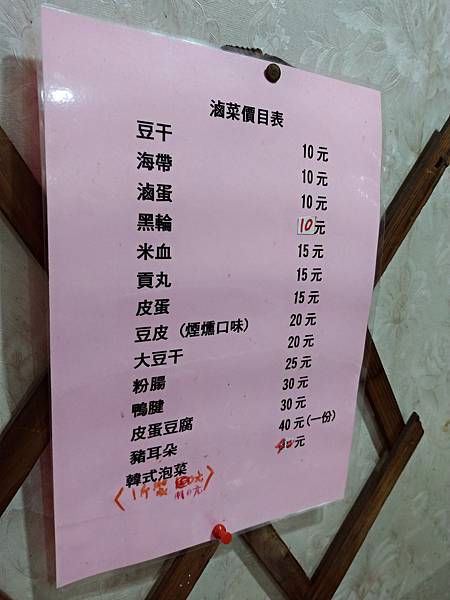 滷菜價目表
豆干 10元
海帶 10元
滷蛋 10元
黑輪 10元
米血 15元
貢丸 15元
皮蛋 15元
豆皮 (煙燻口味) 20元
大豆干 20元
粉腸 25元
鴨腱 30元
皮蛋豆腐 30元
豬耳朵 40元(一份)
韓式泡菜 元
1斤裝 元
元